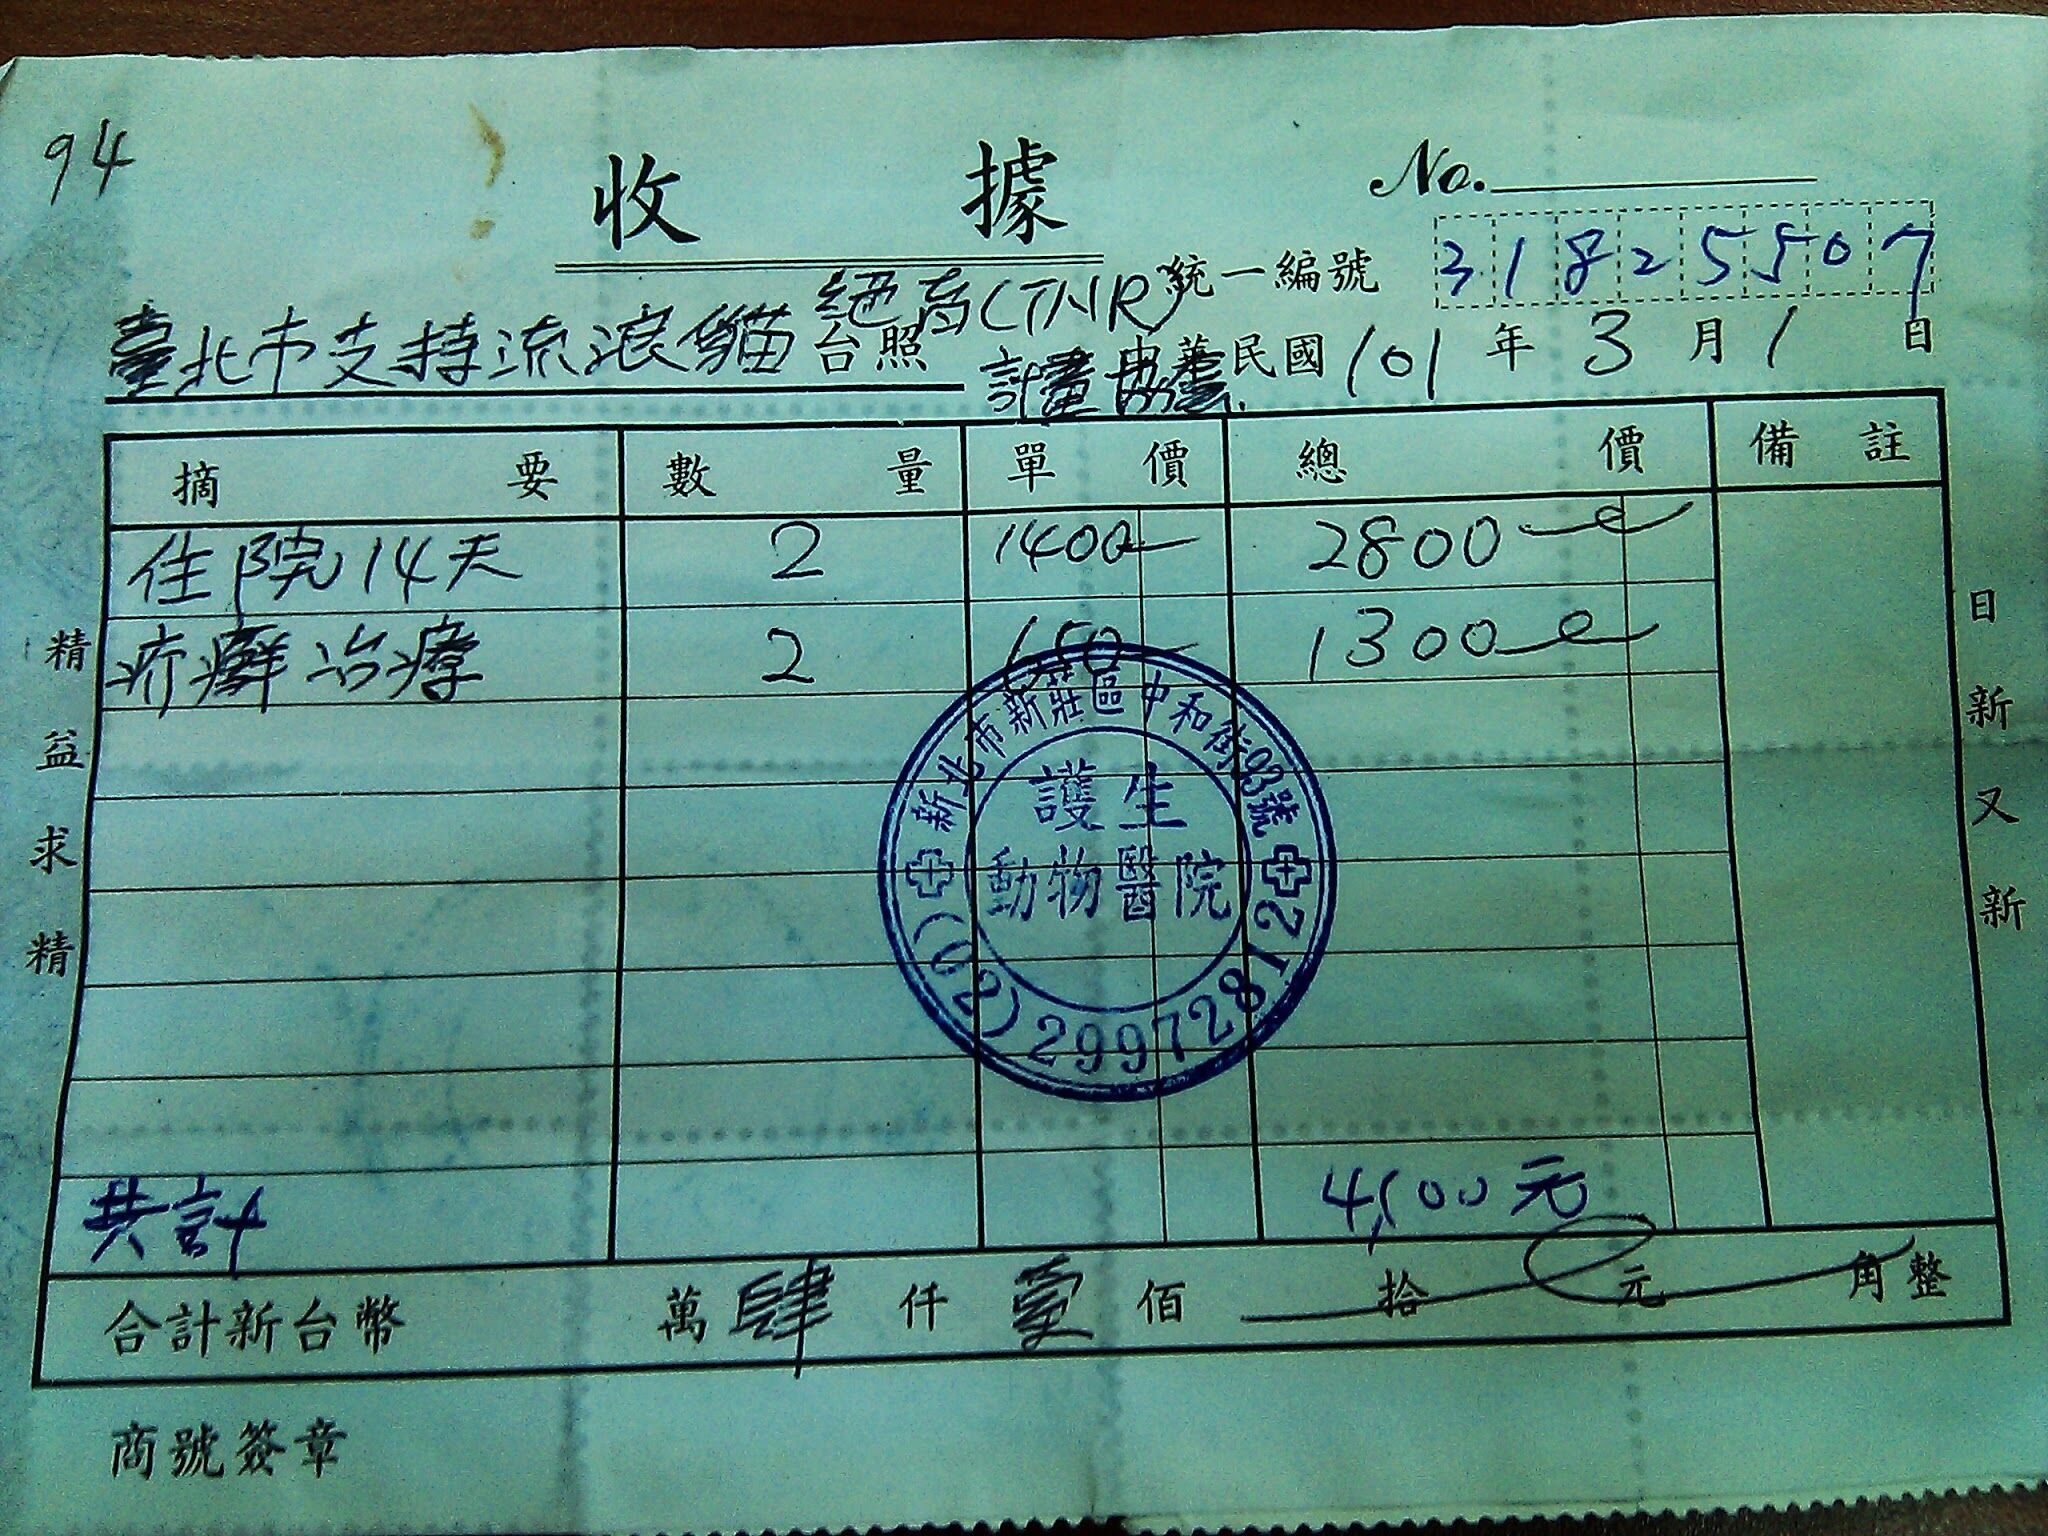 94
收據
No.
統一編號 31825507
臺北市支持流浪貓絕育(TNR)計畫協會 台照
中華民國101年3月1日
摘要 數量 單價 總價 備註
住院14天 2 1400 2800
疥癬治療 2 650 1300
共計 4,100元
合計新台幣 萬肆仟壹佰拾元角整
商號簽章
精益求精
日新又新
新北市新莊區中和街93號
護生
動物醫院
(02)29972812